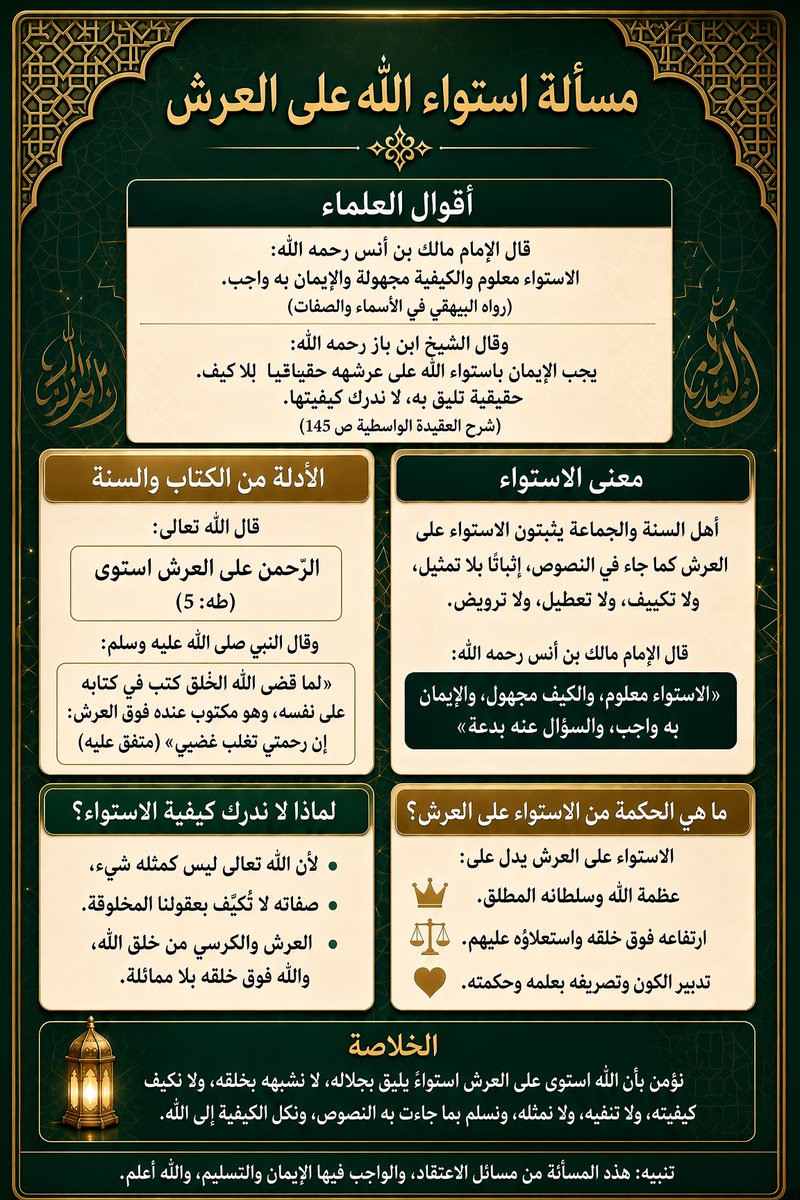 مسألة استواء الله على العرش
أقوال العلماء
قال الإمام مالك بن أنس رحمه الله:
الاستواء معلوم والكيفية مجهولة والإيمان به واجب.
(رواه البيهقي في الأسماء والصفات)
وقال الشيخ ابن باز رحمه الله:
يجب الإيمان باستواء الله على عرشهه حقيافيا بلا كيف.
حقيقية تليق به، لا ندرك كيفيتها.
(شرح العقيدة الواسطية ص 145)
معنى الاستواء
أهل السنة والجماعة يثبتون الاستواء على
العرش كما جاء في النصوص، إثباتًا بلا تمثيل،
ولا تكييف، ولا تعطيل، ولا ترويض.
قال الإمام مالك بن أنس رحمه الله:
«الاستواء معلوم، والكيف مجهول، والإيمان
به واجب، والسؤال عنه بدعة»
الأدلة من الكتاب والسنة
قال الله تعالى:
الرّحمن على العرش استوى
(طه: 5)
وقال النبي صلى الله عليه وسلم:
«لما قضى الله الخْلق كتب في كتابه
على نفسه، وهو مكتوب عنده فوق العرش:
إن رحمتي تغلب غضبي» (متفق عليه)
ما هي الحكمة من الاستواء على العرش؟
الاستواء على العرش يدل على:
عظمة الله وسلطانه المطلق.
ارتفاعه فوق خلقه واستعلاؤه عليهم.
تدبير الكون وتصريفه بعلمه وحكمته.
لماذا لا ندرك كيفية الاستواء؟
• لأن الله تعالى ليس كمثله شيء،
• صفاته لا تُكيَّف بعقولنا المخلوقة.
• العرش والكرسي من خلق الله،
والله فوق خلقه بلا مماثلة.
الخلاصة
نؤمن بأن الله استوى على العرش استواءً يليق بجلاله، لا نشبهه بخلقه، ولا نكيف
كيفيته، ولا تنفيه، ولا نمثله، ونسلم بما جاءت به النصوص، ونكل الكيفية إلى الله.
تنبيه: هذد المسأئة من مسائل الاعتقاد، والواجب فيها الإيمان والتسليم، والله أعلم.